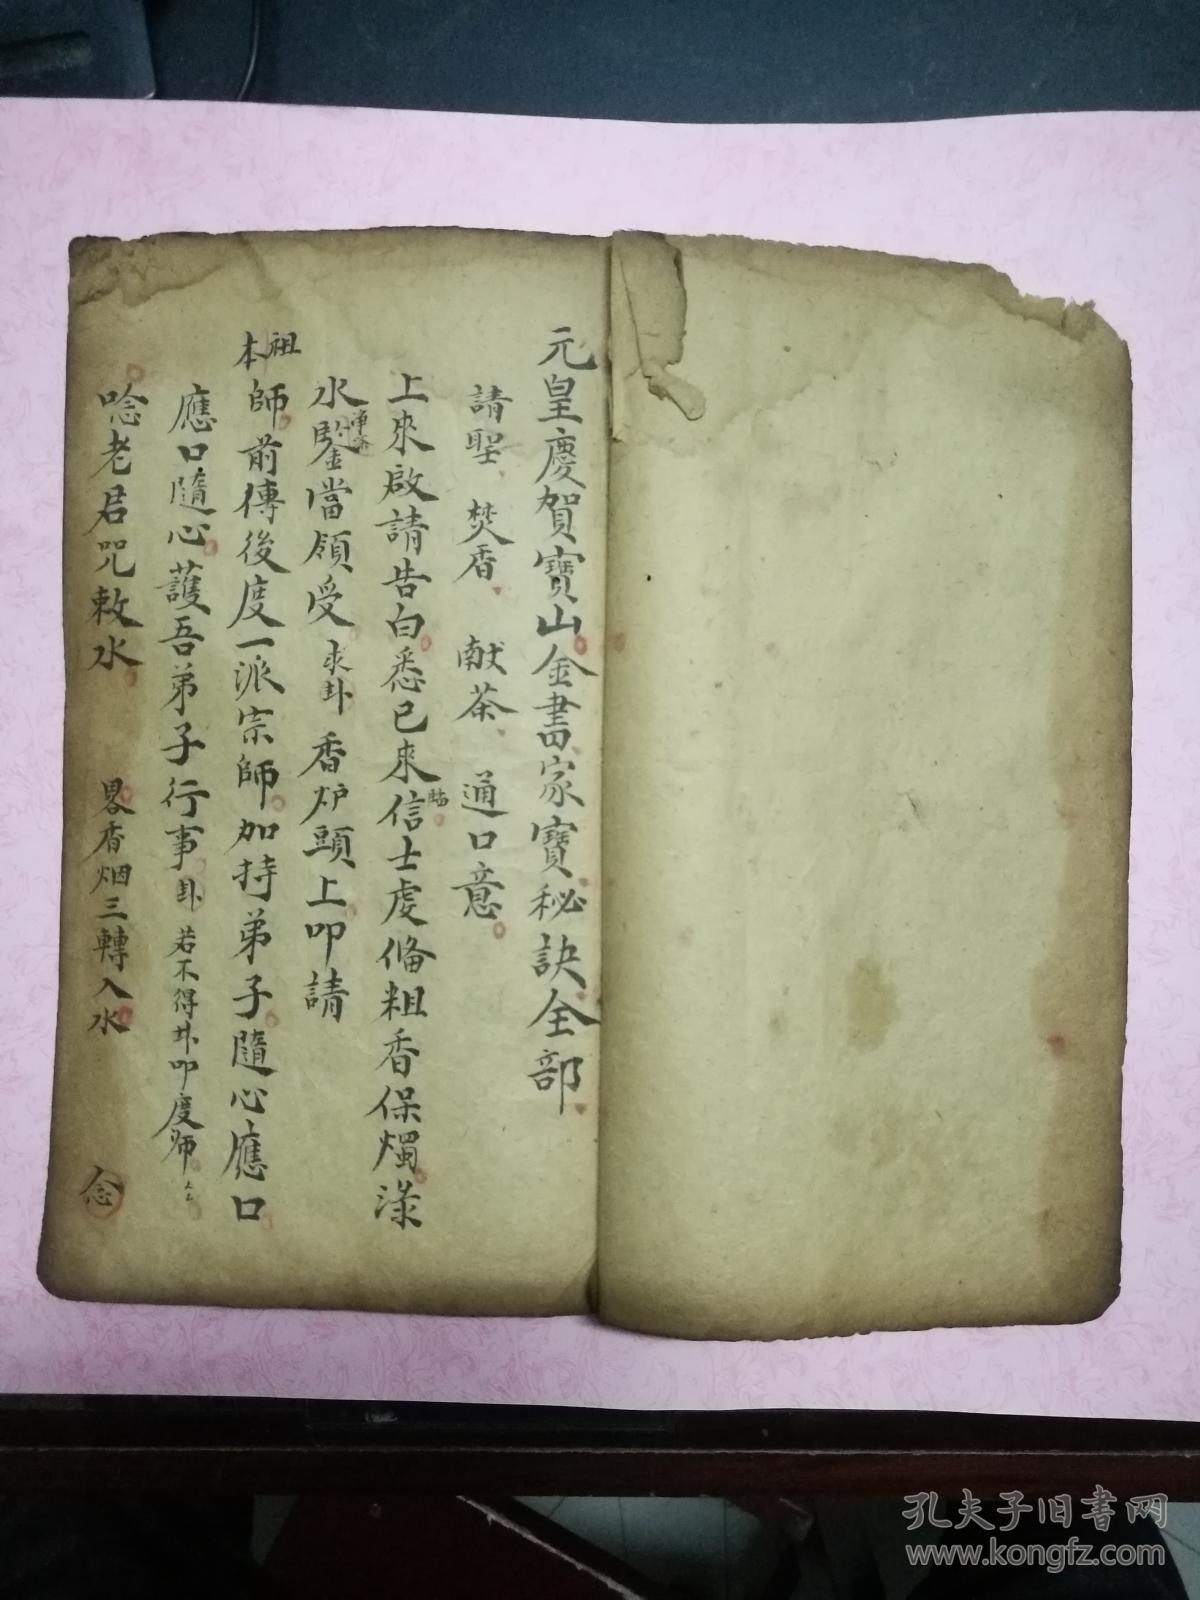 元皇慶賀寶山金書家寶秘訣全部
請聖 焚香 献茶 通口意
上來啟請告白悉已來臨信士虔俻粗香保燭渌
水鑒當領受求卦 香炉頭上叩請
祖本師前傳後度一派宗師加持弟子隨心應口
應口隨心護吾弟子行事卦 若不得卦叩度师
唸老君咒敕水 畧香烟三轉入水 念
孔夫子旧书网
www.kongfz.com